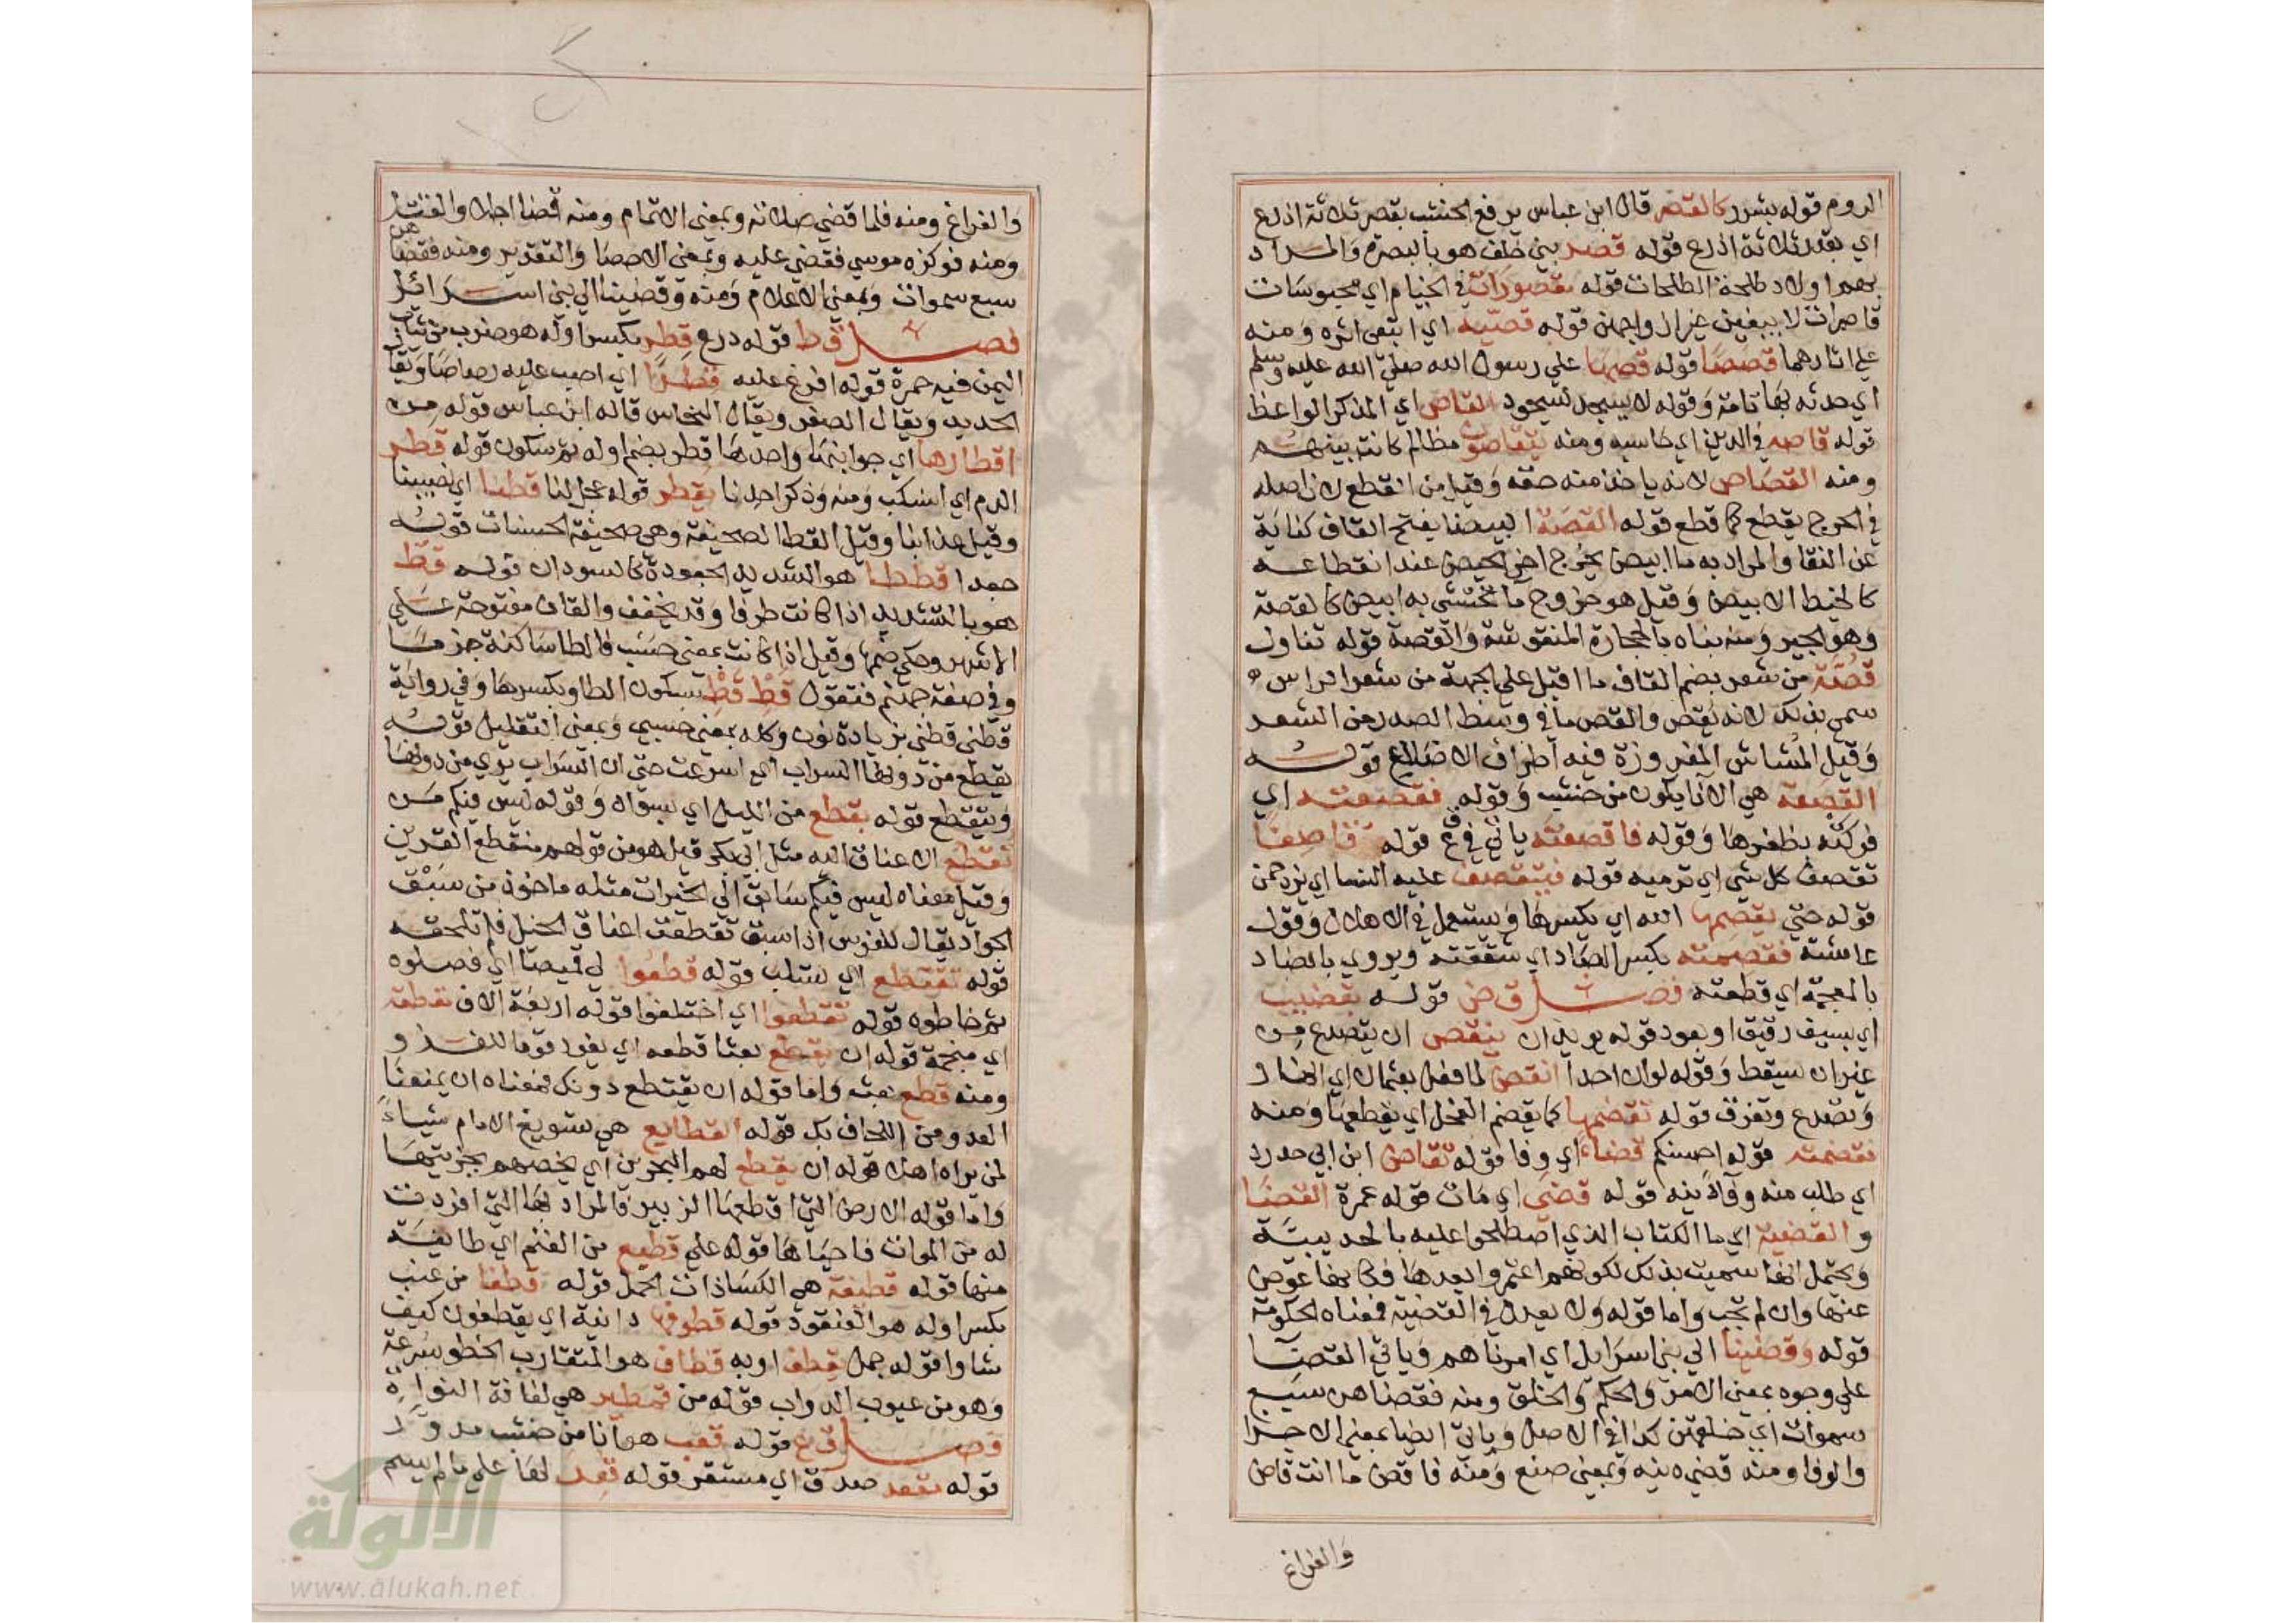 الروم قوله بشرر كالقصر قال ابن عباس يرفع الخشب بقصر ثلاثة اذرع
اي بقدر ثلاثة اذرع قوله قصر بني خلف هو بالبصرة والمراد
بهم اولاد طلحة الطلحات قوله مقصورات في الخيام اي محبوسات
قاصرات لا يبغين غير ازواجهن قوله قصيه اي اتبعي اثره ومنه
على اثارهما قصصا قوله قصها على رسول الله صلى الله عليه وسلم
اي حدثه بها تامة وقوله لا يسجد لسجود القاص اي المذكر الواعظ
قوله قاصه في الدين اي حاسبه ومنه يتقاصون مظالم كانت بينهم
ومنه القصاص لانه ياخذ منه حقه وقيل من القطع لان اصله
في الجرح يقطع كما قطع قوله القصة البيضا بفتح القاف كناية
عن النقا والمراد به ماا ابيض يخرج اخر الحيض عند انقطاعه
كالخيط الابيض وقيل هو خروج ما تحتشي به ابيض كالقصة
وهو الجير ومنه بناه بالحجارة المنقوشة والقصة قوله تناول
قصة من شعر بضم القاف ما اقبل على الجبهة من شعر الراس
سمي بذلك لانه يقص والقص ما في وسط الصدر من الشعر
وقيل المشاش المغروزة فيه اطراف الاضلاع قوله
القصعة هي الانا يكون من خشب وقوله فقصعته اي
فركته بظفرها وقوله فاقصعته ياتي في ق ع قوله قاصفا
تقصف كل شي اي ترميه قوله فيتقصف عليه النسا اي يزدحمن
قوله حتى يقصمها الله اي يكسرها ويستعمل في الاهلاك وقول
عائشة فقصمته بكسر الصاد اي شققته ويروي بالضاد
بالمعجمة اي قطعته فصل ق ض قوله بقضيب
اي بسيف رقيق او بعود قوله يريد ان ينقض ان يتصدع من
غير ان يسقط وقوله لو ان احدا انقض لما فعل بعثمان اي انهار
وتصدع وتفرق قوله تقضمها كما يقضم الفحل اي يقطعها ومنه
فقضمته قوله احسنكم قضاء اي وفا قوله تقاضى ابن ابي حدرد
اي طلب منه وفا دينه قوله قضى اي مات قوله عمرة القضا
والقضية اي ما الكتاب الذي اصطلحوا عليه بالحديبية
ويحتمل انها سميت بذلك لكونهم اعتمروا بعدها فكانها عوض
عنها وان لم تجب واما قوله ولا يعدل في القضية فمعناه الحكومة
قوله وقضينا الى بني اسرايل اي امرناهم وياتي القضا
على وجوه بمعنى الامر والحكم والخلق ومنه فقضاهن سبع
سموات اي خلقهن كذا في الاصل وياتي ايضا بمعنى الاجزا
والوفا ومنه قضى دينه وبمعنى صنع ومنه فاقض ما انت قاض
والفراغ
والفراغ ومنه فلما قضى صلاته وبمعنى الاتمام ومنه قضا اجلا والقتل
ومنه فوكزه موسى فقضى عليه وبمعنى الاحصا والتقدير ومنه فقضاهن
سبع سموات وبمعنى الاعلام ومنه وقضينا الى بني اسرائيل
فصل ق ط قوله درع قطر بكسر اوله هو ضرب من ثياب
اليمن فيه حمرة قوله افرغ عليه قطرا اي اصب عليه رصاصا ويقال
الحديد ويقال الصفر ويقال النحاس قاله ابن عباس قوله من
اقطارها اي جوانبها واحدها قطر بضم اوله ثم سكون قوله قطر
الدم اي انسكب ومنه وذكر احدنا يقطر قوله عجل لنا قطنا اي نصيبنا
وقيل عذابنا وقيل القط الصحيفة وهي صحيفة الحسنات قوله
جعدا قططا هو الشديد الجعودة كالسودان قوله قط
هو بالتشديد اذا كانت ظرفا وقد يخفف والقاف مفتوحة على
الاشهر وحكي ضمها وقيل اذا كانت بمعنى حسب فالطا ساكنة جزما
وفي صفة جهنم فتقول قط قط بسكون الطا وبكسرها وفي رواية
قطني قطني بزيادة نون وكله بمعنى حسبي وبمعنى التقليل قوله
يقطع من دونها السراب اي اسرعت حتى ان السراب يرى من دونها
ويتقطع قوله بقطع من الليل اي بسواد وقوله ليس فيكم من
تقطع الاعناق اليه مثل ابي بكر قيل هو من قولهم منقطع القرين
وقيل معناه ليس فيكم سابق الى الخيرات مثله ماخوذ من سبق
الجواد يقال للفرس اذا سبق تقطعت اعناق الخيل فلم تلحقه
قوله تقتطع اي تستلب قوله قطعوا لي قميصا اي فصلوه
ثم خاطوه قوله تقطعوا اي اختلفوا قوله اربعة الاف مقطعة
اي منجمة قوله ان يقطع بعثا قطعه اي يفرد قوما للغزو
ومنه قطع بعث واما قوله ان يقتطع دونك فمعناه ان يمنعنا
العدو من اللحاق بك قوله القطايع هي تسويغ الامام شياء
لمن يراه اهلا قوله ان يقطع لهم البحرين اي يخصهم بجزيتها
واما قوله الارض التي اقطعها الزبير فالمراد بها التي افردت
له من الموات فاحياها قوله على قطيع من الغنم اي طايفة
منها قوله قطيفة هي الكسا ذات الخمل قوله قطفا من عنب
بكسر اوله هو العنقود قوله قطوفها دانية اي يقطفون كيف
شاوا قوله جمل قطف او به قطاف هو المتقارب الخطو بسرعة
وهو من عيوب الدواب قوله من قطمير هي لفافة النواة
فصل ق ع قوله قعب هو انا من خشب مدور
قوله مقعد صدق اي مستقر قوله قعد لها على ما لم يسم
الألوكة
www.alukah.net